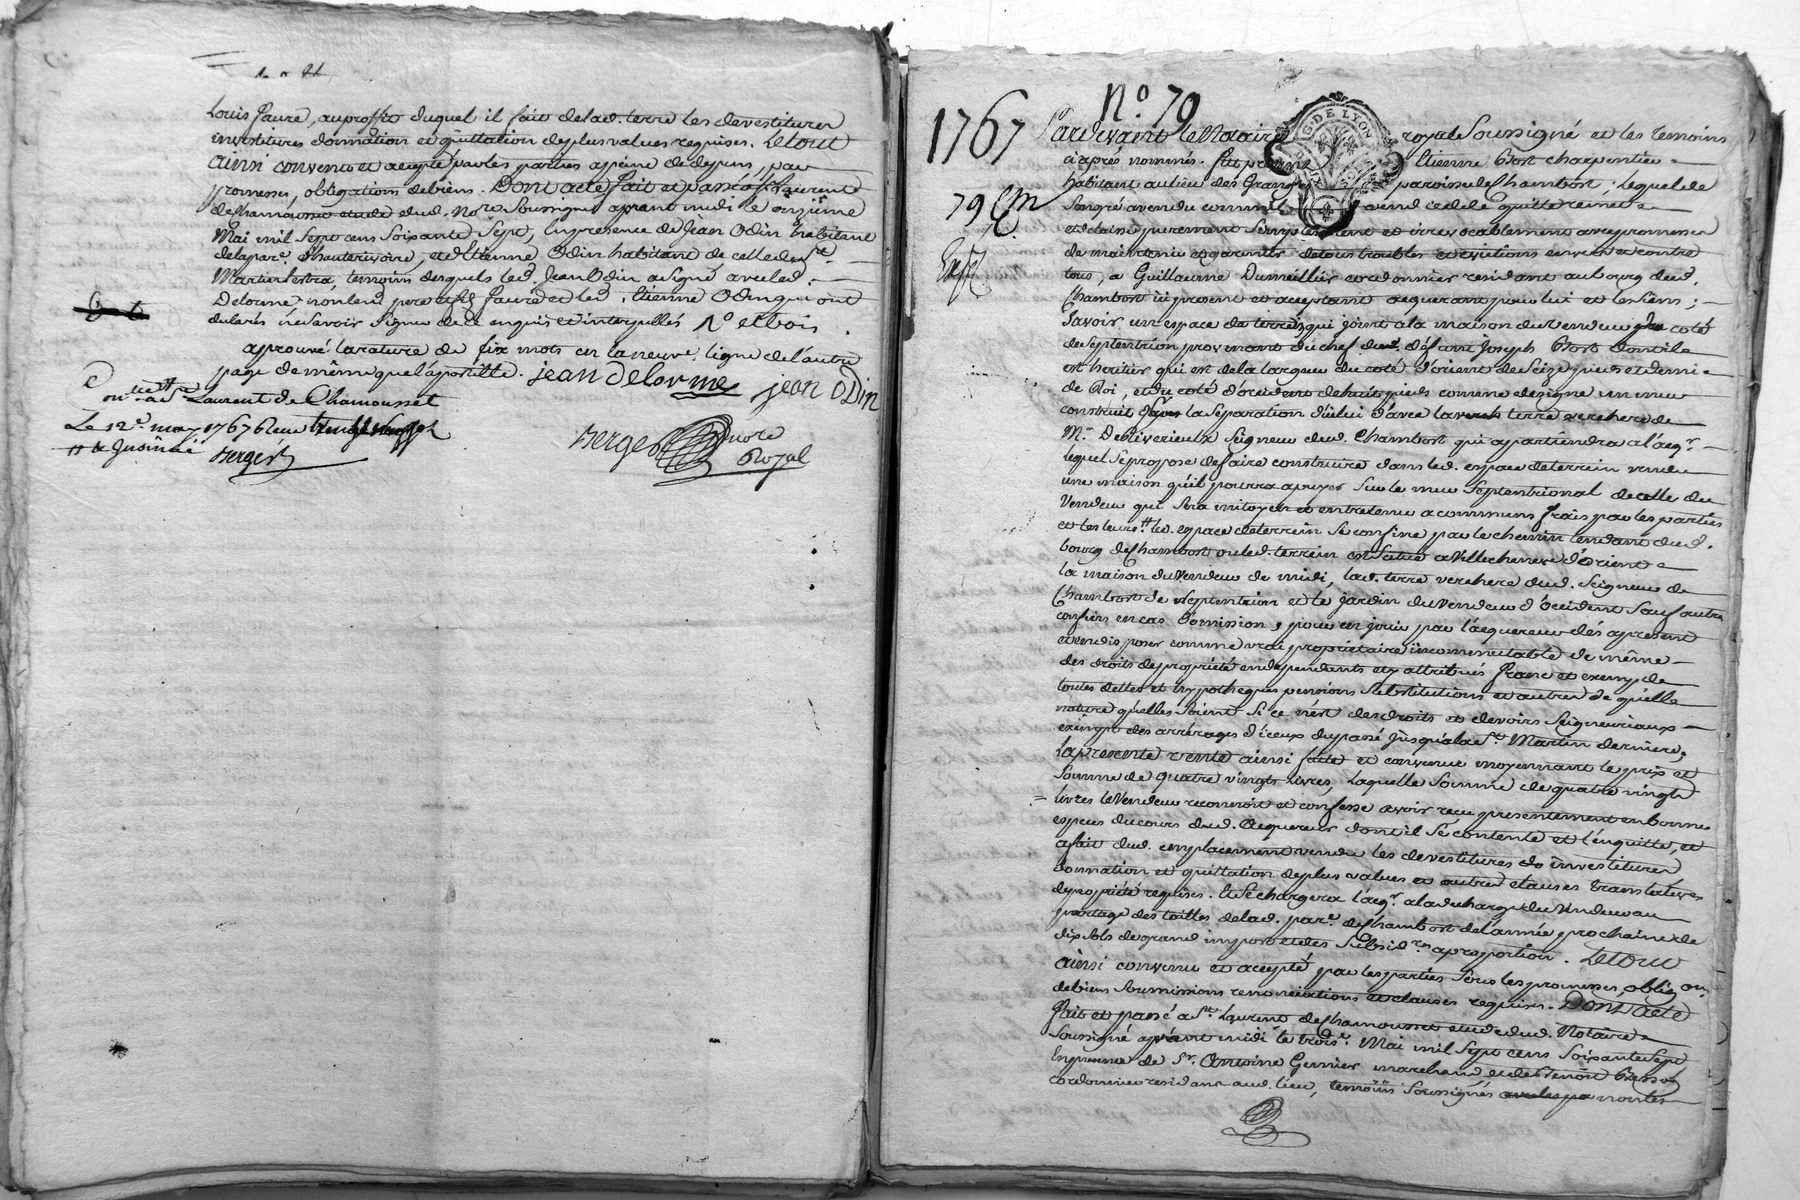 Louis faure, au proffit duquel il fait de lad. terre les devestitures
investitures donnation et quittation de plus values requises. Le tout
ainsi convenu et accepté par les parties a peine de depens, par
promesses, obligations de biens. Dont acte fait et passé a St Laurent
de Chamousset etude dud. Nore. Soussigné aprant midi le onzieme
Mai mil Sept cens Soixante Sept, En presence de Jean Odin habitant
de la par. d'hauterivoire, et d'Etienne Odin habitant de celle de
Martin Lestra, temoins desquels led. Jean Odin a signé avec led.
Delorme non led. pere et fils faure et led. Etienne Odin qui ont
declarés ne Savoir Signer de ce enquis et interpellés
aprouvé la rature de six mots en la neuve. ligne de l'autre
page de même que l'apostille. jean delorme jean ODin
Berger nore Royal
St Laurent de Chamousset
Le 12e may 1767 Reçu
Berger
No. 79
1767
79
Pardevant le Notaire royal Soussigné et les temoins
ci après nommés. fut présent Etienne Bost charpentier
habitant au lieu des Granges paroisse de Chambost; lequel de
Son gré a vendu comme il vend cede quitte remet
et delaisse purement Simplement et irrevocablement avec promesse
de maintenir et garentir de tous troubles et evictions envers et contre
tous, a Guillaume Dumeillier cordonnier residant au bourg dud.
Chambost ici present et acceptant acquerant pour lui et les siens;
Savoir un espace de terrein qui joint a la maison du Vendeur du coté
de Septentrion provenant du chef dud. défunt Joseph Bost dont il a
est heritier qui est de la largeur du coté d'orient de Seize pieds et demi
de Roi, et du coté d'occident de huit pieds comme designe un mur
construit pour la Separation d'icelui d'avec la terre verchere de
Mr. De Riverieulx Seigneur dud. Chambost qui appartiendra a l'acqr.
lequel Se propose de faire construire dans led. espace de terrein vendu
une maison qu'il pourra apuyer Sur le mur Septentrional de celle du
Vendeur qui Sera mitoyen et entretenu a communs frais par les parties
et les leurs. led. espace de terrein Se confine par le chemin tendant dud.
bourg de Chambost ou led. terrein est Scitué a Villechenève d'orient
la maison du Vendeur de midi, lad. terre verchere dud. Seigneur de
Chambost de Septentrion et le jardin du Vendeur d'occident Sauf autres
confins en cas d'omission, pour en jouir par l'acquereur dés apresent
et en disposer comme vrai proprietaire incommutable de même
des droits de propriété en dependants et y attribués franc et exempt de
toutes dettes et hypotheques pensions Substitutions et autres de quelle
nature quelles Soient Si ce n'est des droits et devoirs Seigneuriaux
exempt des arrérages d'iceux du passé jusqu'a la St. Martin derniere,
la presente vente ainsi faite et convenue moyennant le prix et
Somme de quatre vingts livres, laquelle Somme de quatre vingt
livres le Vendeur reconnoit et confesse avoir reçu presentement en bonnes
especes du cours dud. Acquereur dont il Se contente et l'en quitte, et
a fait dud. emplacement vendu les devestitures et investitures
donnation et quittation de plus values et autres clauses translatives
de propriété requises. et Se chargera l'acqr. a la decharge du Vendeur au
partage des tailles de lad. par. de Chambost de l'année prochaine de
dix Sols de grand impot et des Subsidres a proportion. Le tout
ainsi convenu et accepté par les parties Sous les promesses, obligon.
de biens Soumissions renonciations et clauses requises. Dont acte
fait et passé a St Laurent de Chamousset etude dud. Notaire
Soussigné aprant midi le trois. Mai mil Sept cens Soixante Sept
En presence de Sr. Antoine Gernier marchand et de Benoit
cordonnier residans aud. lieu, temoins Soussignés non les